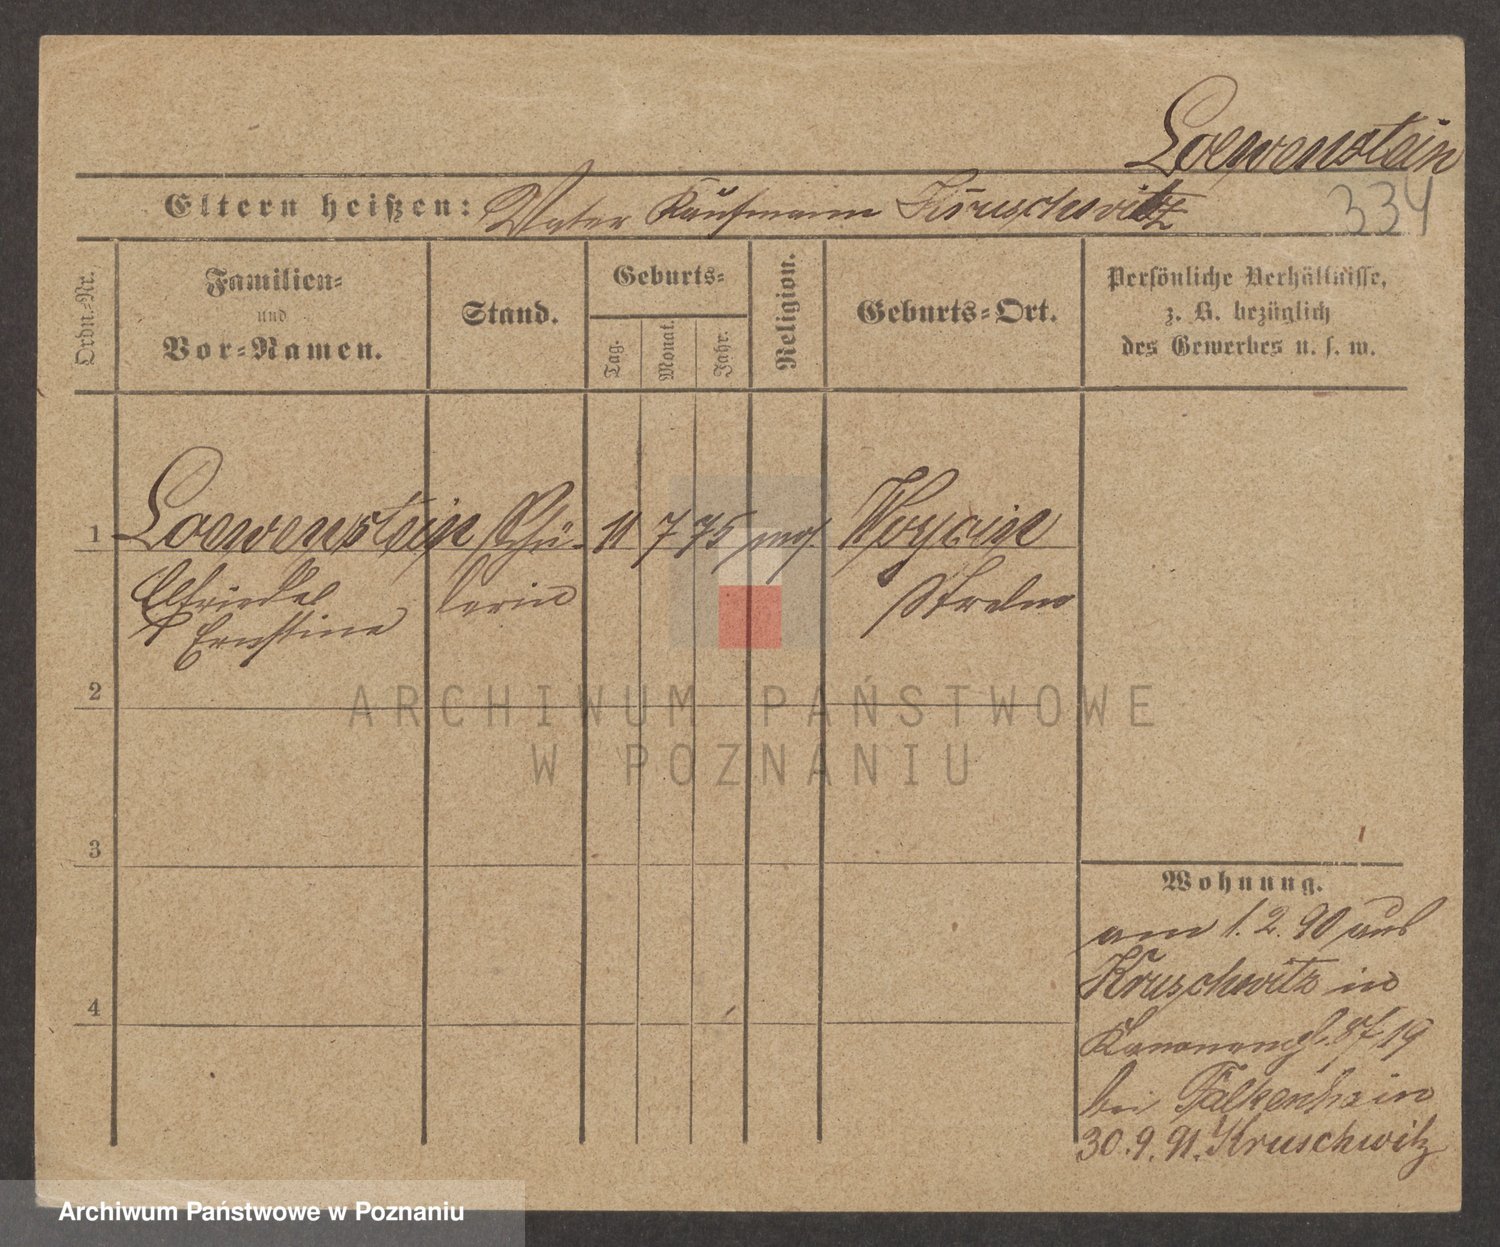 Loewenstein
334
Eltern heißen: Vater Kaufmann Kruschwitz
Ordn.-Nr.
Familien-
und
Vor-Namen.
Stand.
Geburts-
Tag.
Monat.
Jahr.
Religion.
Geburts-Ort.
Persönliche Verhältnisse,
z. B. bezüglich
des Gewerbes u. s. w.
1 Loewenstein Schü- 11 7 75 mos. Woycin
Elfriede lerin Strelno
Ernstine
2
3
4
Wohnung.
am 1.2.90 aus
Kruschwitz in
Kanonenpl. 19
bei Falkenhain
30.9.91. Kruschwitz
ARCHIWUM PAŃSTWOWE
W POZNANIU
Archiwum Państwowe w Poznaniu